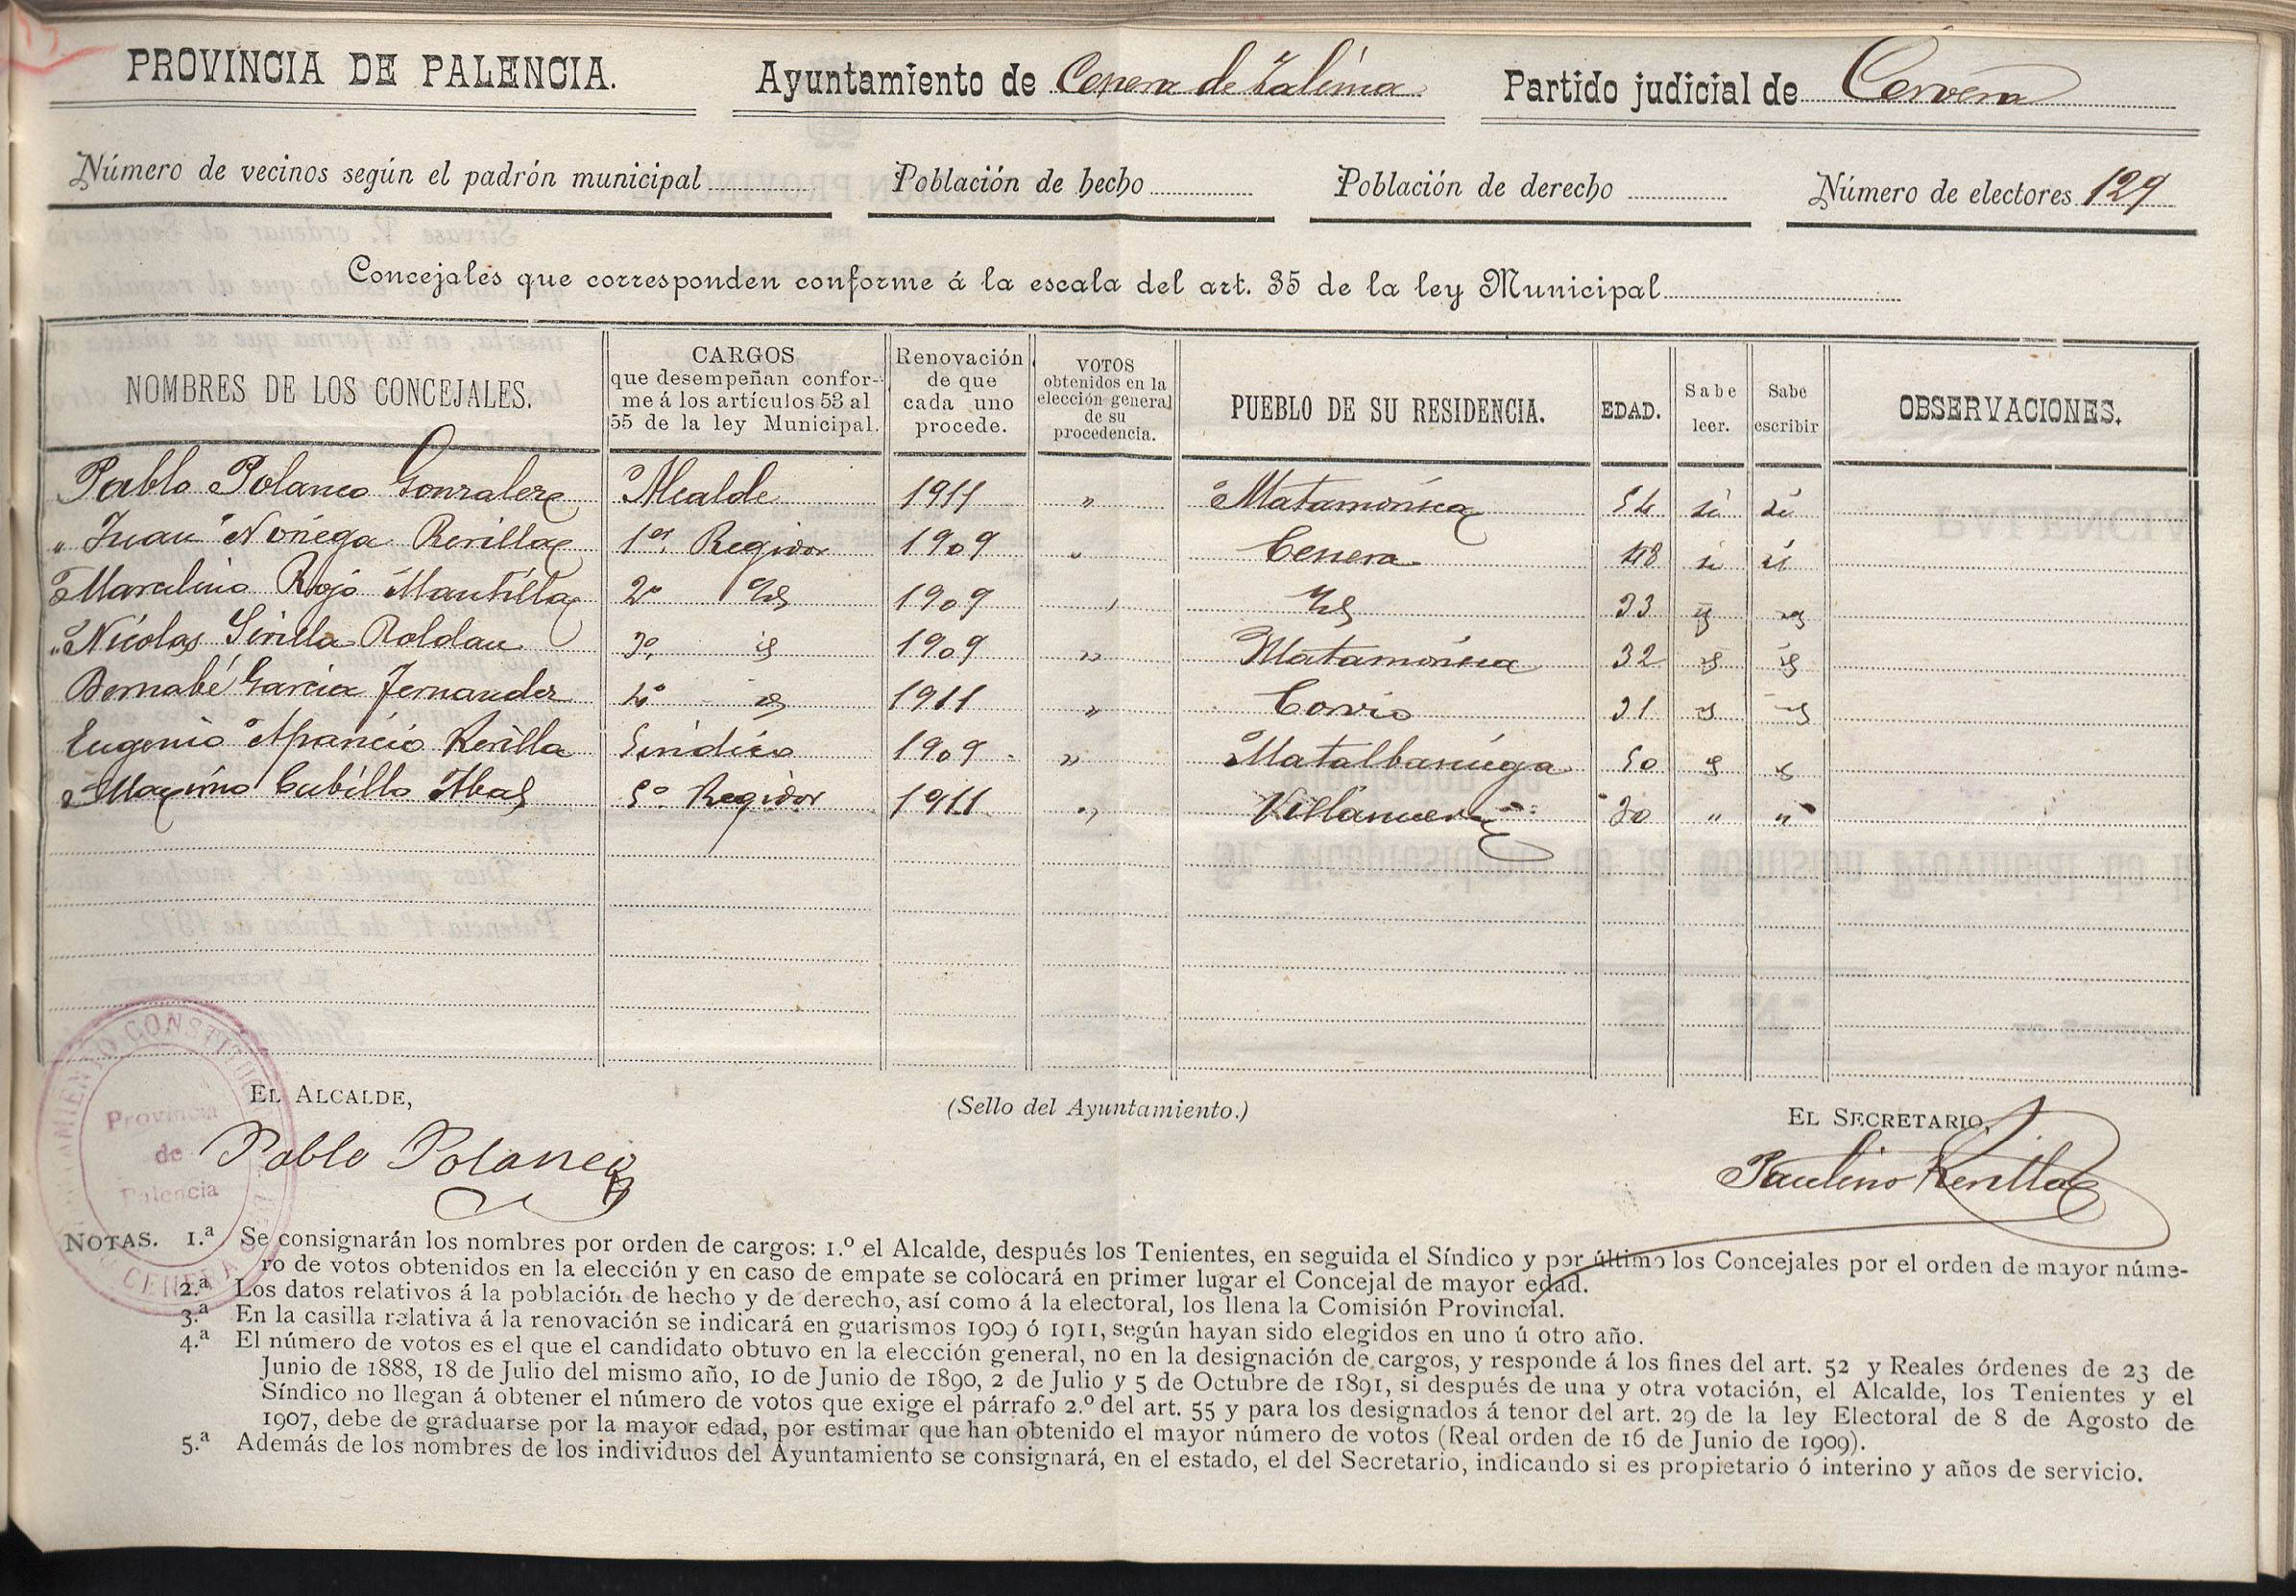 PROVINCIA DE PALENCIA. Ayuntamiento de Cenera de Zalima Partido judicial de Cervera
Número de vecinos según el padrón municipal Población de hecho Población de derecho Número de electores 129
Concejales que corresponden conforme á la escala del art. 35 de la ley Municipal
NOMBRES DE LOS CONCEJALES. CARGOS que desempeñan conforme á los artículos 53 al 55 de la ley Municipal. Renovación de que cada uno procede. VOTOS obtenidos en la elección general de su procedencia. PUEBLO DE SU RESIDENCIA. EDAD. Sabe leer. Sabe escribir OBSERVACIONES.
Pablo Polanco Gonzalez Alcalde 1911 " Matamorisca 54 si si
" Juan Noriega Revilla 1er. Regidor 1909 " Cenera 48 si si
Marcelino Rojo Mantilla 2º Id 1909 " Id 33 id id
" Nicolas Sevilla Roldan 3º id 1909 " Matamorisca 32 id id
Bernabé Garcia Fernandez 4º id 1911 " Corvio 31 id id
Eugenio Aparicio Revilla Sindico 1909 " Matalbaniega 50 id id
Maximo Cubillo Abad 5º Regidor 1911 " Villanueva 30 " "
EL ALCALDE, (Sello del Ayuntamiento.) EL SECRETARIO,
Pablo Polanco Paulino Revilla
Provincia de Palencia
NOTAS. 1.ª Se consignarán los nombres por orden de cargos: 1.º el Alcalde, después los Tenientes, en seguida el Síndico y por último los Concejales por el orden de mayor núme-
ro de votos obtenidos en la elección y en caso de empate se colocará en primer lugar el Concejal de mayor edad.
2.ª Los datos relativos á la población de hecho y de derecho, así como á la electoral, los llena la Comisión Provincial.
3.ª En la casilla relativa á la renovación se indicará en guarismos 1909 ó 1911, según hayan sido elegidos en uno ú otro año.
4.ª El número de votos es el que el candidato obtuvo en la elección general, no en la designación de cargos, y responde á los fines del art. 52 y Reales órdenes de 23 de
Junio de 1888, 18 de Julio del mismo año, 10 de Junio de 1890, 2 de Julio y 5 de Octubre de 1891, si después de una y otra votación, el Alcalde, los Tenientes y el
Síndico no llegan á obtener el número de votos que exige el párrafo 2.º del art. 55 y para los designados á tenor del art. 29 de la ley Electoral de 8 de Agosto de
1907, debe de graduarse por la mayor edad, por estimar que han obtenido el mayor número de votos (Real orden de 16 de Junio de 1909).
5.ª Además de los nombres de los individuos del Ayuntamiento se consignará, en el estado, el del Secretario, indicando si es propietario ó interino y años de servicio.